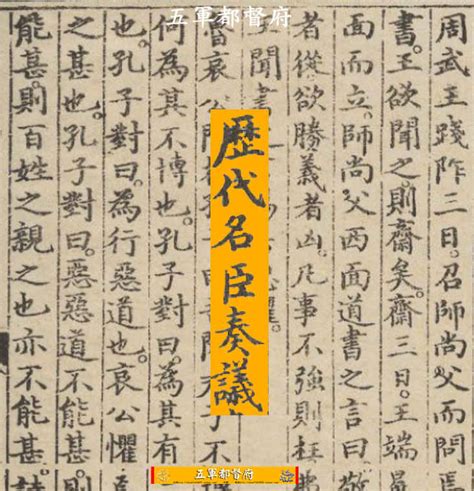 五軍都督府
周武王踐阼三日。召師尚父而問
書。王欲聞之。則齋矣。齋三日。王端冕
面而立。師尚父西面道書之言曰
者從。欲勝義者凶。凡事不強則枉
聞書
哀公
歷代名臣奏議
何為其不博也。孔子對曰。為其有
也。孔子對曰。為行惡道也。哀公懼
甚也。孔子對曰。惡惡道不能甚
能甚。則百姓之親之也。亦不能甚。詩
五軍都督府